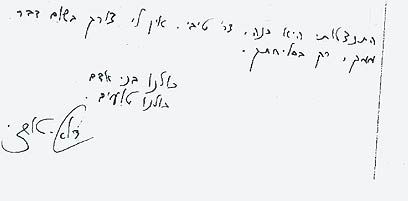 התנצלותי היא כנה, צר' טיבי. אין לי צורך בשום דבר
ממך, רק בסליחתך.
כולנו בני אדם
כולנו טועים.